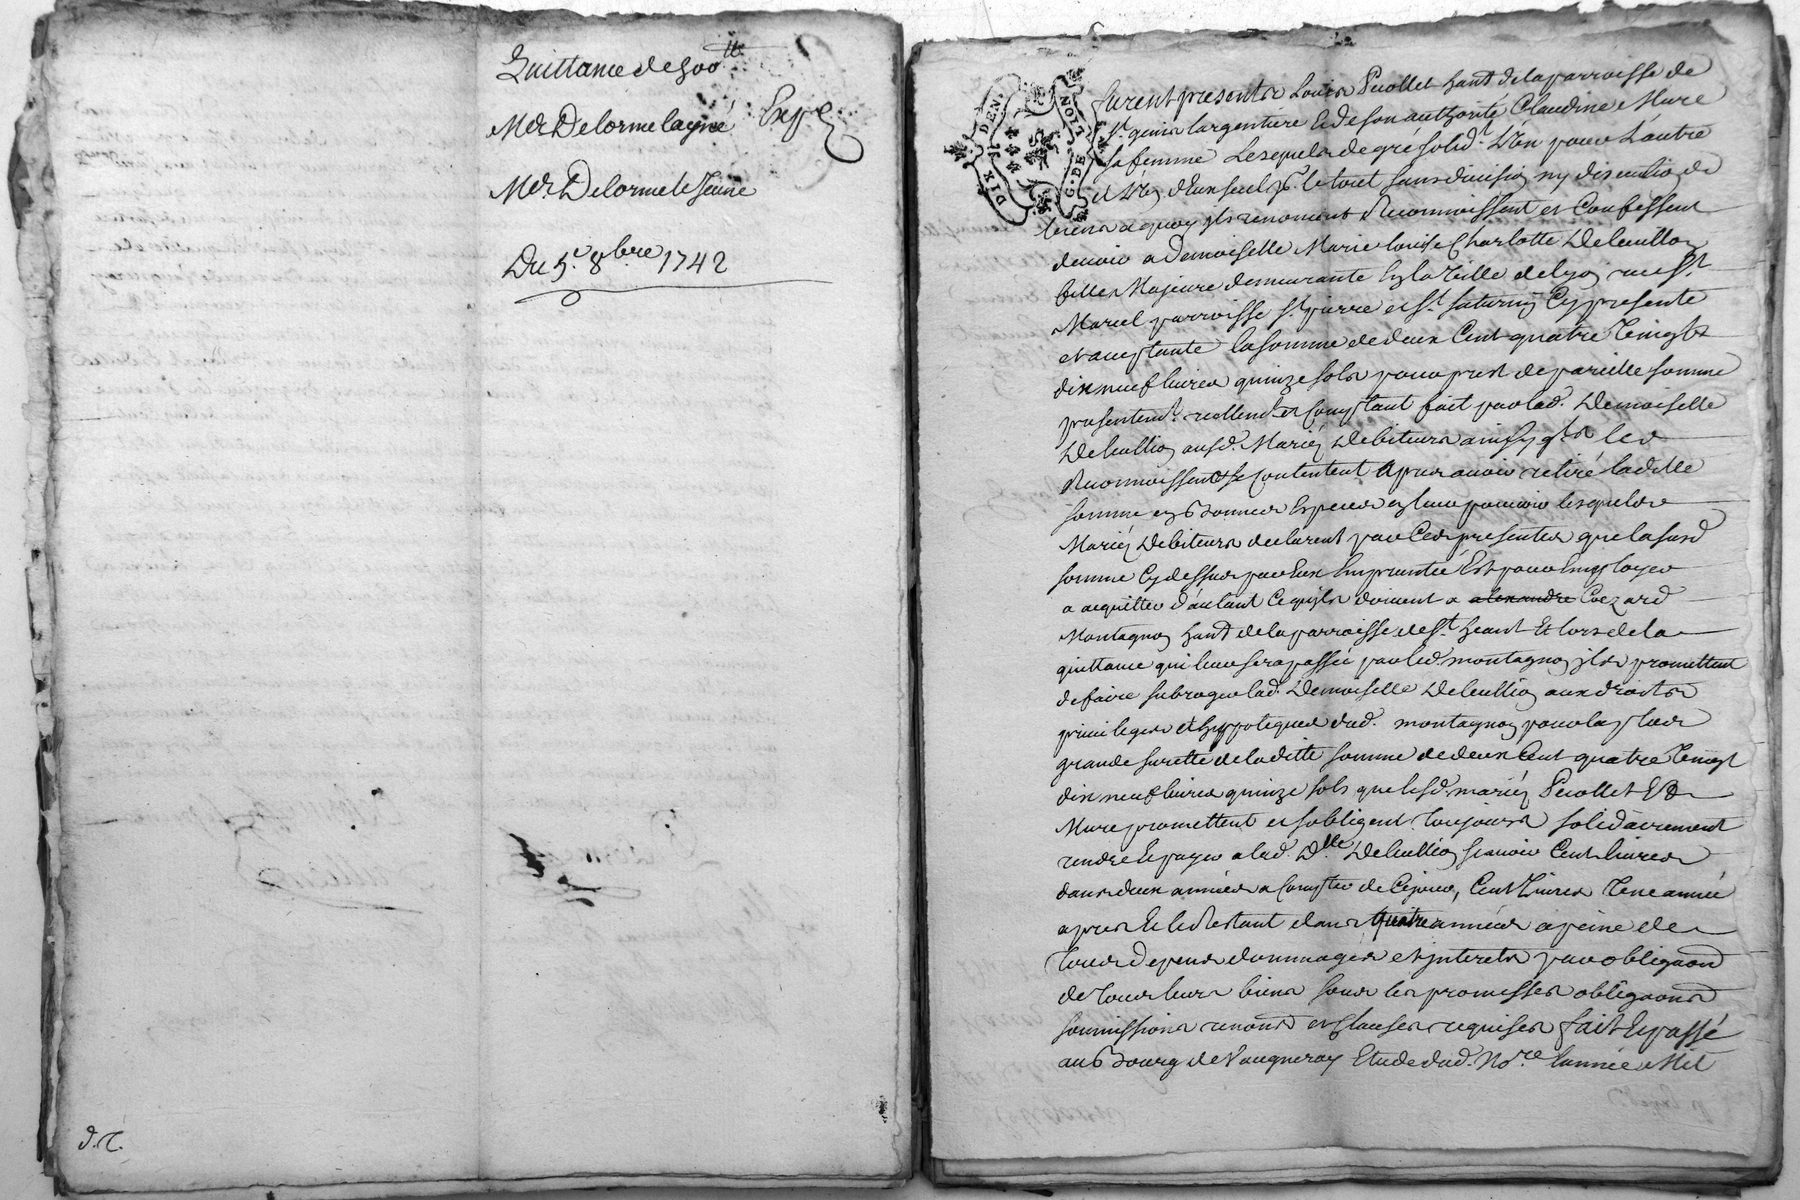 Quittance de 500 ll
Mr Delorme layné Expe
Mr Delorme le Jeune
Du 5e 8bre 1742
d. t.
DIX DEN.
G. DE LION
furent presents Louis Piollet habt de la parroisse de
St. genis largentiere Et de son authorité Claudine Mure
sa femme Lesquels de gré solidt. L'un pour L'autre
et L'un d'Eux seul pr. le tout sans division ny discution de
biens a quoy ils renoncent Reconnoissent et Confessent
devoir a Demoiselle Marie louise Charlotte
fille Majeure demeurante En la Ville de lyon rue St
Marcel parroisse St. pierre et St. saturnin Cy presente
et acceptante la somme de deux Cent quatre Vingts
dix neuf livres quinze sols pour prest de pareille somme
presentemt. reellemt et Comptant fait par lad. Demoiselle
ausd. Mariés Debiteurs ainsy qls le
Reconnoissent et se Contentent Apres avoir retiré laditte
somme en Bonnes Especes en leur pouvoir lesquels
Mariés Debiteurs declarent par Ces presentes que la susd
somme Cy dessus par Eux Empruntée Est pour Employer
a acquitter d'autant Ce qu'ils doivent a alexandre
Montagnon habt de la parroisse de St. heant Et lors de la
quittance qui leur sera passée par led. montagnon ils promettent
de faire subroger lad. Demoiselle aux droits
privileges et hyppoteques dud. montagnon pour la plus
grande surette de laditte somme de deux Cent quatre Vingt
dix neuf livres quinze sols que lesd. mariés Piollet Et
Mure promettent et s'obligent toujours solidairement
rendre Et payer a lad. Dlle scavoir Cent livres
dans deux années a Compter de Ce jour, Cent Livres Une année
apres Et le Restant dans quatre années a peine de
tous depens dommages et interets par obligaon
de tous leurs biens sous les promesses obligaons
soumissions renonds et Clauses requises fait Et passé
au Bourg de Vaugneray Etude dud. Nore l'année Mil